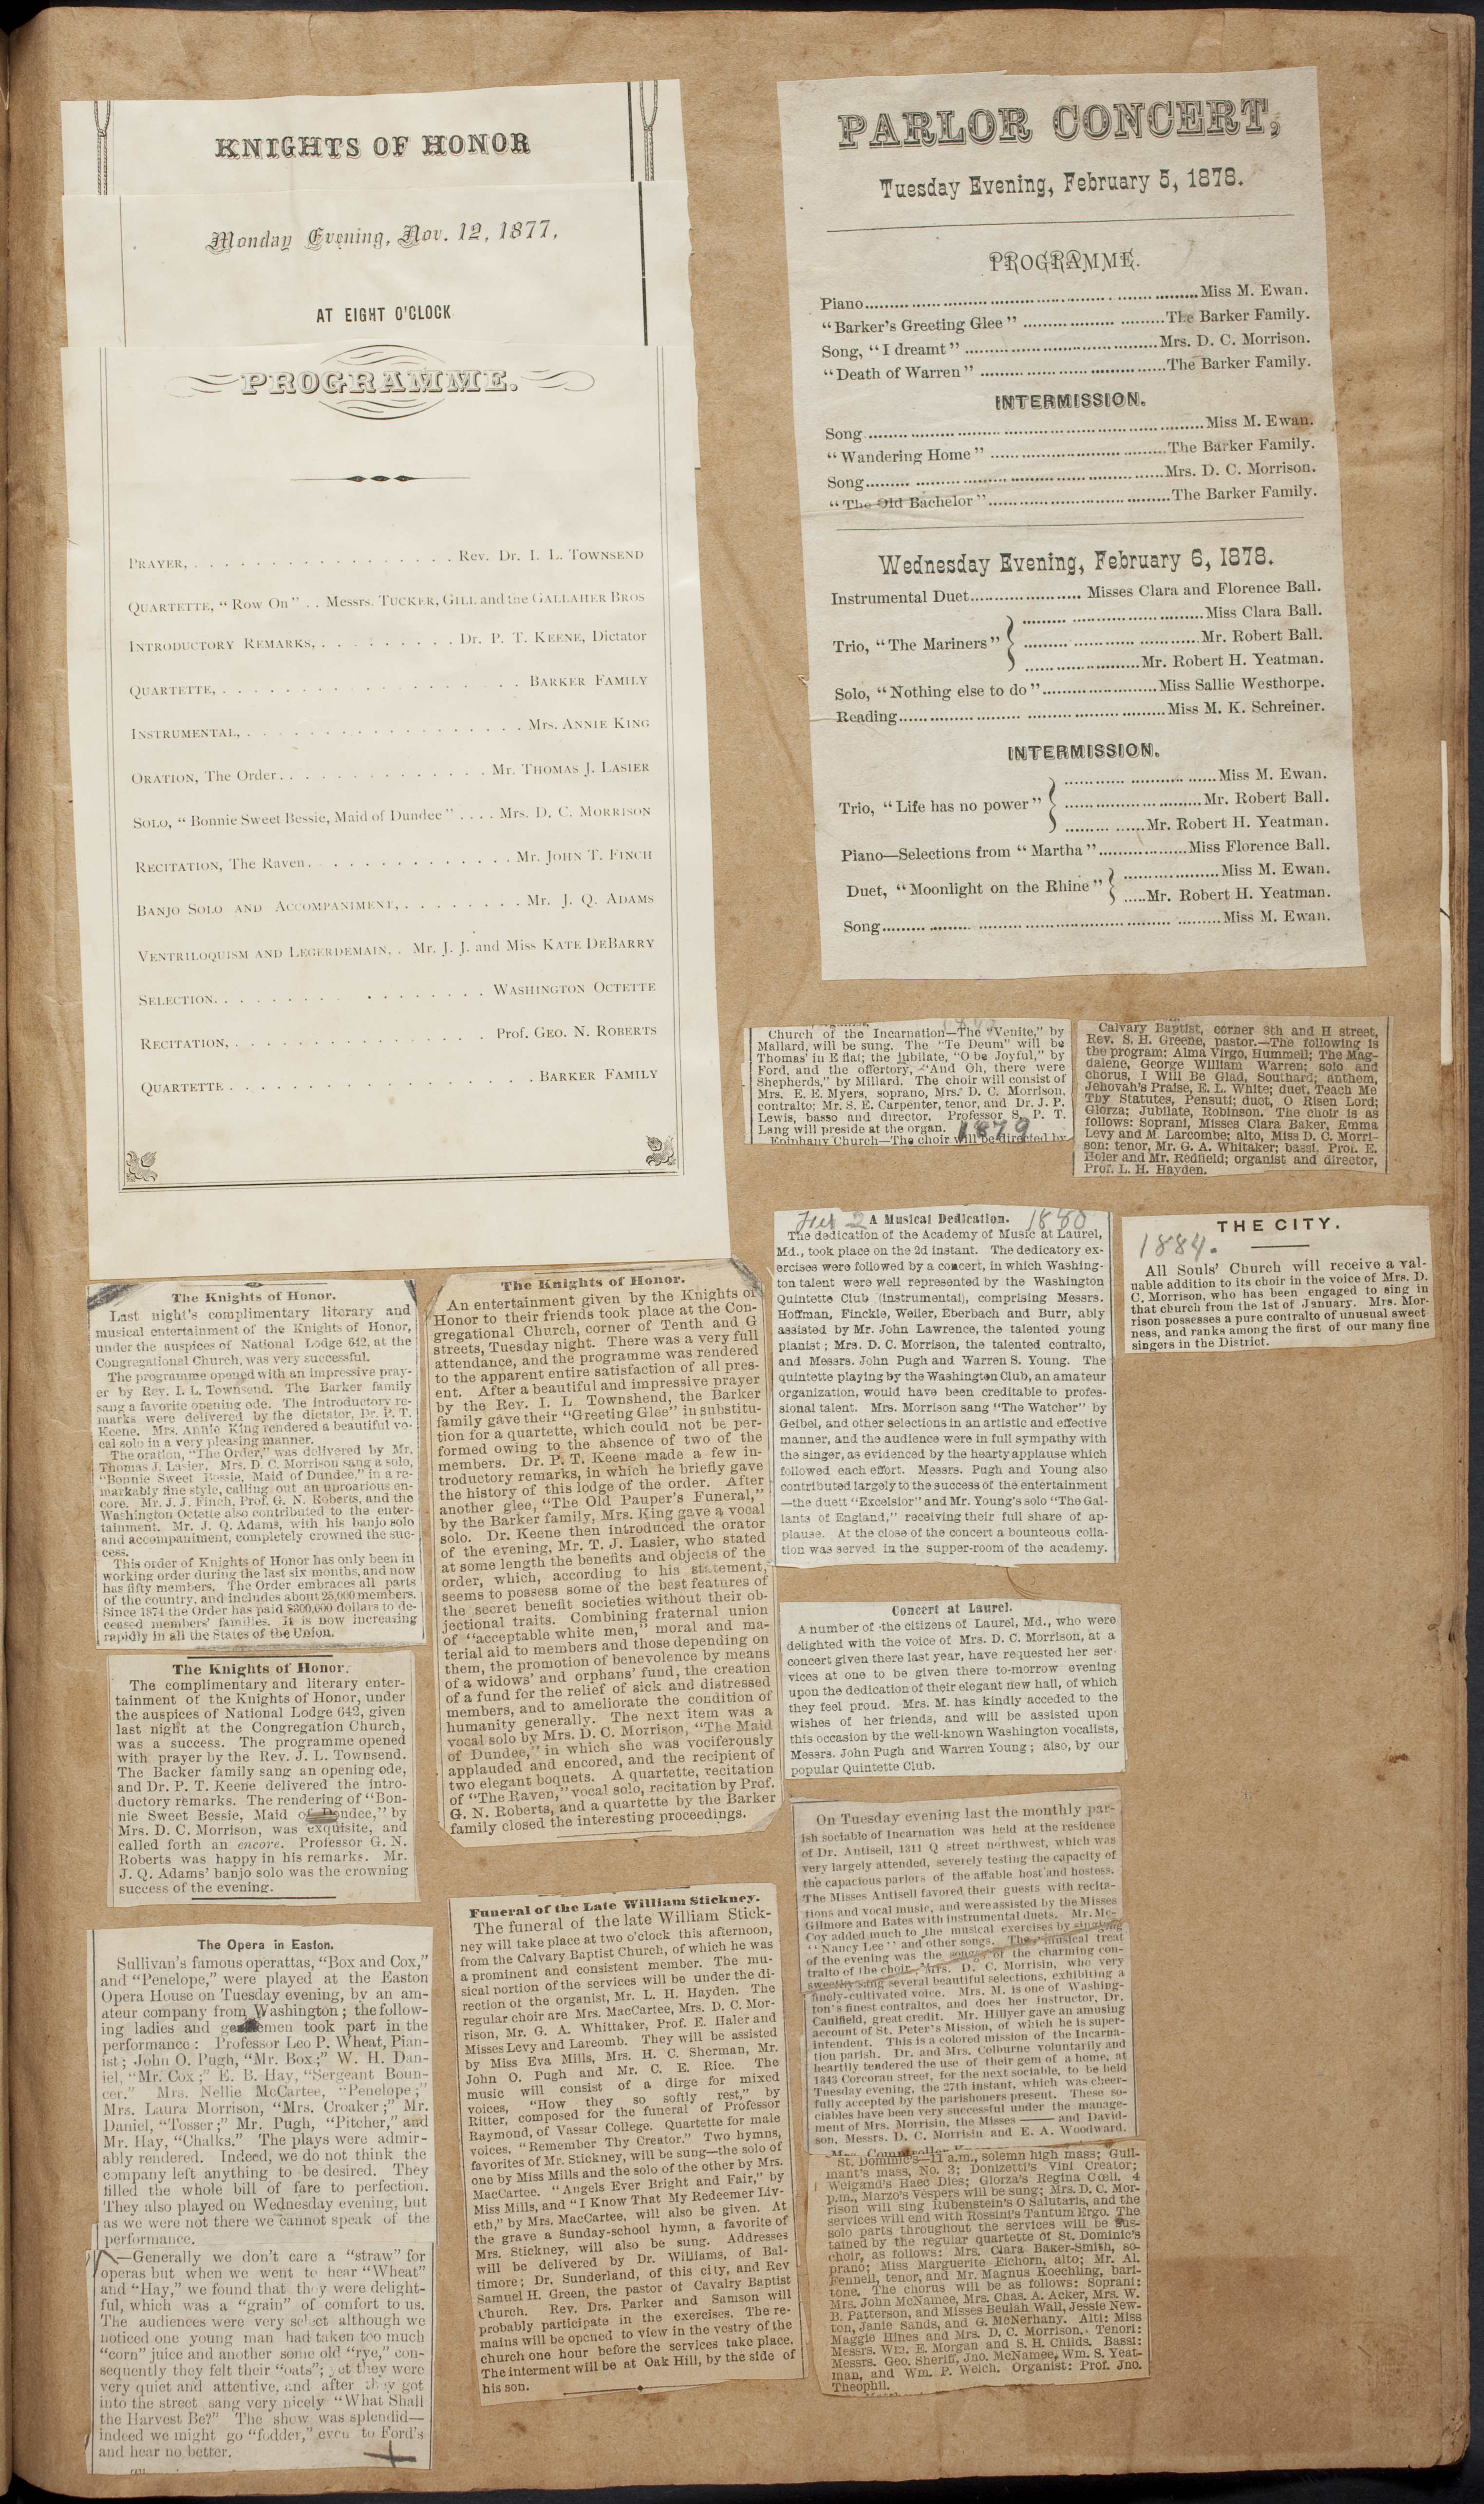 KNIGHTS OF HONOR
Monday Evening, Nov. 12, 1877,
AT EIGHT O'CLOCK
PROGRAMME.
PRAYER, . . . . . . . . . . . . . . . . . Rev. Dr. I. L. TOWNSEND
QUARTETTE, "Row On" . . Messrs. TUCKER, GILL and the GALLAHER BROS
INTRODUCTORY REMARKS, . . . . . . . . . Dr. P. T. KEENE, Dictator
QUARTETTE, . . . . . . . . . . . . . . . . . . . BARKER FAMILY
INSTRUMENTAL, . . . . . . . . . . . . . . . . . . Mrs. ANNIE KING
ORATION, The Order . . . . . . . . . . . . . . Mr. THOMAS J. LASIER
SOLO, "Bonnie Sweet Bessie, Maid of Dundee" . . . . Mrs. D. C. MORRISON
RECITATION, The Raven . . . . . . . . . . . . . . Mr. JOHN T. FINCH
BANJO SOLO AND ACCOMPANIMENT, . . . . . . . . Mr. J. Q. ADAMS
VENTRILOQUISM AND LEGERDEMAIN, . Mr. J. J. and Miss KATE DEBARRY
SELECTION . . . . . . . . . . . . . . . . . WASHINGTON OCTETTE
RECITATION, . . . . . . . . . . . . . . . . . Prof. GEO. N. ROBERTS
QUARTETTE . . . . . . . . . . . . . . . . . . . . BARKER FAMILY
The Knights of Honor.
Last night's complimentary literary and
musical entertainment of the Knights of Honor,
under the auspices of National Lodge 642, at the
Congregational Church, was very successful.
The programme opened with an impressive pray-
er by Rev. I. L. Townsend. The Barker family
sang a favorite opening ode. The introductory re-
marks were delivered by the dictator, Dr. P. T.
Keene. Mrs. Annie King rendered a beautiful vo-
cal solo in a very pleasing manner.
The oration, "The Order," was delivered by Mr.
Thomas J. Lasier. Mrs. D. C. Morrison sang a solo,
"Bonnie Sweet Bessie, Maid of Dundee," in a re-
markably fine style, calling out an uproarious en-
core. Mr. J. J. Finch, Prof. G. N. Roberts, and the
Washington Octette also contributed to the enter-
tainment. Mr. J. Q. Adams, with his banjo solo
and accompaniment, completely crowned the suc-
cess.
This order of Knights of Honor has only been in
working order during the last six months, and now
has fifty members. The Order embraces all parts
of the country, and includes about 25,000 members.
Since 1874 the Order has paid $300,000 dollars to de-
ceased members' families. It is now increasing
rapidly in all the States of the Union.
The Knights of Honor.
The complimentary and literary enter-
tainment of the Knights of Honor, under
the auspices of National Lodge 642, given
last night at the Congregation Church,
was a success. The programme opened
with prayer by the Rev. J. L. Townsend.
The Backer family sang an opening ode,
and Dr. P. T. Keene delivered the intro-
ductory remarks. The rendering of "Bon-
nie Sweet Bessie, Maid of Dundee," by
Mrs. D. C. Morrison, was exquisite, and
called forth an encore. Professor G. N.
Roberts was happy in his remarks. Mr.
J. Q. Adams' banjo solo was the crowning
success of the evening.
The Opera in Easton.
Sullivan's famous operattas, "Box and Cox,"
and "Penelope," were played at the Easton
Opera House on Tuesday evening, by an am-
ateur company from Washington; the follow-
ing ladies and gentlemen took part in the
performance: Professor Leo P. Wheat, Pian-
ist; John O. Pugh, "Mr. Box;" W. H. Dan-
iel, "Mr. Cox;" E. B. Hay, "Sergeant Boun-
cer." Mrs. Nellie McCartee, "Penelope;"
Mrs. Laura Morrison, "Mrs. Croaker;" Mr.
Daniel, "Tosser;" Mr. Pugh, "Pitcher," and
Mr. Hay, "Chalks." The plays were admir-
ably rendered. Indeed, we do not think the
company left anything to be desired. They
filled the whole bill of fare to perfection.
They also played on Wednesday evening, but
as we were not there we cannot speak of the
performance.
—Generally we don't care a "straw" for
operas but when we went to hear "Wheat"
and "Hay," we found that they were delight-
ful, which was a "grain" of comfort to us.
The audiences were very select although we
noticed one young man had taken too much
"corn" juice and another some old "rye," con-
sequently they felt their "oats"; yet they were
very quiet and attentive, and after they got
into the street sang very nicely "What Shall
the Harvest Be?" The show was splendid—
indeed we might go "fodder," even to Ford's
and hear no better.
The Knights of Honor.
An entertainment given by the Knights of
Honor to their friends took place at the Con-
gregational Church, corner of Tenth and G
streets, Tuesday night. There was a very full
attendance, and the programme was rendered
to the apparent entire satisfaction of all pres-
ent. After a beautiful and impressive prayer
by the Rev. I. L. Townshend, the Barker
family gave their "Greeting Glee" in substitu-
tion for a quartette, which could not be per-
formed owing to the absence of two of the
members. Dr. P. T. Keene made a few in-
troductory remarks, in which he briefly gave
the history of this lodge of the order. After
another glee, "The Old Pauper's Funeral,"
by the Barker family, Mrs. King gave a vocal
solo. Dr. Keene then introduced the orator
of the evening, Mr. T. J. Lasier, who stated
at some length the benefits and objects of the
order, which, according to his statement,
seems to possess some of the best features of
the secret benefit societies without their ob-
jectional traits. Combining fraternal union
of "acceptable white men," moral and ma-
terial aid to members and those depending on
them, the promotion of benevolence by means
of a widows' and orphans' fund, the creation
of a fund for the relief of sick and distressed
members, and to ameliorate the condition of
humanity generally. The next item was a
vocal solo by Mrs. D. C. Morrison, "The Maid
of Dundee," in which she was vociferously
applauded and encored, and the recipient of
two elegant boquets. A quartette, recitation
of "The Raven," vocal solo, recitation by Prof.
G. N. Roberts, and a quartette by the Barker
family closed the interesting proceedings.
Funeral of the Late William Stickney.
The funeral of the late William Stick-
ney will take place at two o'clock this afternoon,
from the Calvary Baptist Church, of which he was
a prominent and consistent member. The mu-
sical portion of the services will be under the di-
rection of the organist, Mr. L. H. Hayden. The
regular choir are Mrs. MacCartee, Mrs. D. C. Mor-
rison, Mr. G. A. Whittaker, Prof. E. Haler and
Misses Levy and Larcomb. They will be assisted
by Miss Eva Mills, Mrs. H. C. Sherman, Mr.
John O. Pugh and Mr. C. E. Rice. The
music will consist of a dirge for mixed
voices, "How they so softly rest," by
Ritter, composed for the funeral of Professor
Raymond, of Vassar College. Quartette for male
voices, "Remember Thy Creator." Two hymns,
favorites of Mr. Stickney, will be sung—the solo of
one by Miss Mills and the solo of the other by Mrs.
MacCartee. "Angels Ever Bright and Fair," by
Miss Mills, and "I Know That My Redeemer Liv-
eth," by Mrs. MacCartee, will also be given. At
the grave a Sunday-school hymn, a favorite of
Mrs. Stickney, will also be sung. Addresses
will be delivered by Dr. Williams, of Bal-
timore; Dr. Sunderland, of this city, and Rev
Samuel H. Green, the pastor of Cavalry Baptist
Church. Rev. Drs. Parker and Samson will
probably participate in the exercises. The re-
mains will be opened to view in the vestry of the
church one hour before the services take place.
The interment will be at Oak Hill, by the side of
his son.
PARLOR CONCERT,
Tuesday Evening, February 5, 1878.
PROGRAMME.
Piano..............................Miss M. Ewan.
"Barker's Greeting Glee" ....................The Barker Family.
Song, "I dreamt" ..............................Mrs. D. C. Morrison.
"Death of Warren" ..............................The Barker Family.
INTERMISSION.
Song ..............................Miss M. Ewan.
"Wandering Home" ..............................The Barker Family.
Song..............................Mrs. D. C. Morrison.
"The Old Bachelor"..............................The Barker Family.
Wednesday Evening, February 6, 1878.
Instrumental Duet.................... Misses Clara and Florence Ball.
Trio, "The Mariners" } ....................Miss Clara Ball.
....................Mr. Robert Ball.
....................Mr. Robert H. Yeatman.
Solo, "Nothing else to do"....................Miss Sallie Westhorpe.
Reading..............................Miss M. K. Schreiner.
INTERMISSION.
Trio, "Life has no power" } ....................Miss M. Ewan.
....................Mr. Robert Ball.
....................Mr. Robert H. Yeatman.
Piano—Selections from "Martha"..................Miss Florence Ball.
Duet, "Moonlight on the Rhine" } ..................Miss M. Ewan.
.....Mr. Robert H. Yeatman.
Song..............................Miss M. Ewan.
Church of the Incarnation—The "Venite," by
Mallard, will be sung. The "Te Deum" will be
Thomas' in E flat; the jubilate, "O be Joyful," by
Ford, and the offertory, "And Oh, there were
Shepherds," by Millard. The choir will consist of
Mrs. E. E. Myers, soprano, Mrs. D. C. Morrison,
contralto; Mr. S. E. Carpenter, tenor, and Dr. J. P.
Lewis, basso and director. Professor S. P. T.
Lang will preside at the organ. 1879
Epiphany Church—The choir will be directed by
Calvary Baptist, corner 8th and H street,
Rev. S. H. Greene, pastor.—The following is
the program: Alma Virgo, Hummell; The Mag-
dalene, George William Warren; solo and
chorus, I Will Be Glad, Southard; anthem,
Jehovah's Praise, E. L. White; duet, Teach Me
Thy Statutes, Pensuti; duet, O Risen Lord;
Glorza; Jubilate, Robinson. The choir is as
follows: Soprani, Misses Clara Baker, Emma
Levy and M. Larcombe; alto, Miss D. C. Morri-
son; tenor, Mr. G. A. Whitaker; bassi, Prof. E.
Holer and Mr. Redfield; organist and director,
Prof. L. H. Hayden.
Feb 2 1880
A Musical Dedication.
The dedication of the Academy of Music at Laurel,
Md., took place on the 2d instant. The dedicatory ex-
ercises were followed by a concert, in which Washing-
ton talent were well represented by the Washington
Quintette Club (instrumental), comprising Messrs.
Hoffman, Finckle, Weiler, Eberbach and Burr, ably
assisted by Mr. John Lawrence, the talented young
pianist; Mrs. D. C. Morrison, the talented contralto,
and Messrs. John Pugh and Warren S. Young. The
quintette playing by the Washington Club, an amateur
organization, would have been creditable to profes-
sional talent. Mrs. Morrison sang "The Watcher" by
Geibel, and other selections in an artistic and effective
manner, and the audience were in full sympathy with
the singer, as evidenced by the hearty applause which
followed each effort. Messrs. Pugh and Young also
contributed largely to the success of the entertainment
—the duett "Excelsior" and Mr. Young's solo "The Gal-
lants of England," receiving their full share of ap-
plause. At the close of the concert a bounteous colla-
tion was served in the supper-room of the academy.
THE CITY.
1884.
All Souls' Church will receive a val-
uable addition to its choir in the voice of Mrs. D.
C. Morrison, who has been engaged to sing in
that church from the 1st of January. Mrs. Mor-
rison possesses a pure contralto of unusual sweet-
ness, and ranks among the first of our many fine
singers in the District.
Concert at Laurel.
A number of the citizens of Laurel, Md., who were
delighted with the voice of Mrs. D. C. Morrison, at a
concert given there last year, have requested her ser-
vices at one to be given there to-morrow evening
upon the dedication of their elegant new hall, of which
they feel proud. Mrs. M. has kindly acceded to the
wishes of her friends, and will be assisted upon
this occasion by the well-known Washington vocalists,
Messrs. John Pugh and Warren Young; also, by our
popular Quintette Club.
On Tuesday evening last the monthly par-
ish sociable of Incarnation was held at the residence
of Dr. Antisell, 1311 Q street northwest, which was
very largely attended, severely testing the capacity of
the capacious parlors of the affable host and hostess.
The Misses Antisell favored their guests with recita-
tions and vocal music, and were assisted by the Misses
Gilmore and Bates with instrumental duets. Mr. Mc-
Coy added much to the musical exercises by singing
"Nancy Lee" and other songs. The musical treat
of the evening was the songs of the charming con-
tralto of the choir, Mrs. D. C. Morrisin, who very
sweetly sang several beautiful selections, exhibiting a
finely-cultivated voice. Mrs. M. is one of Washing-
ton's finest contraltos, and does her instructor, Dr.
Caulfield, great credit. Mr. Hillyer gave an amusing
account of St. Peter's Mission, of which he is super-
intendent. This is a colored mission of the Incarna-
tion parish. Dr. and Mrs. Colburne voluntarily and
heartily tendered the use of their gem of a home, at
1343 Corcoran street, for the next sociable, to be held
Tuesday evening, the 27th instant, which was cheer-
fully accepted by the parishoners present. These so-
ciables have been very successful under the manage-
ment of Mrs. Morrisin, the Misses —— and David-
son, Messrs. D. C. Morrisin and E. A. Woodward.
St. Dominic's—11 a.m., solemn high mass; Guil-
mant's mass, No. 3; Donizetti's Vini Creator;
Weigand's Haec Dies; Giorza's Regina Cœli. 4
p.m., Marzo's Vespers will be sung; Mrs. D. C. Mor-
rison will sing Rubenstein's O Salutaris, and the
services will end with Rossini's Tantum Ergo. The
solo parts throughout the services will be sus-
tained by the regular quartette of St. Dominic's
choir, as follows: Mrs. Clara Baker-Smith, so-
prano; Miss Marguerite Eichorn, alto; Mr. Al.
Fennell, tenor, and Mr. Magnus Koechling, bari-
tone. The chorus will be as follows: Soprani:
Mrs. John McNamee, Mrs. Chas. A. Acker, Mrs. W.
B. Patterson, and Misses Beulah Wall, Jessie New-
ton, Janie Sands, and G. McNerhany. Alti: Miss
Maggie Hines and Mrs. D. C. Morrison. Tenori:
Messrs. Wm. E. Morgan and S. H. Childs. Bassi:
Messrs. Geo. Sheriff, Jno. McNamee, Wm. S. Yeat-
man, and Wm. P. Welch. Organist: Prof. Jno.
Theophil.